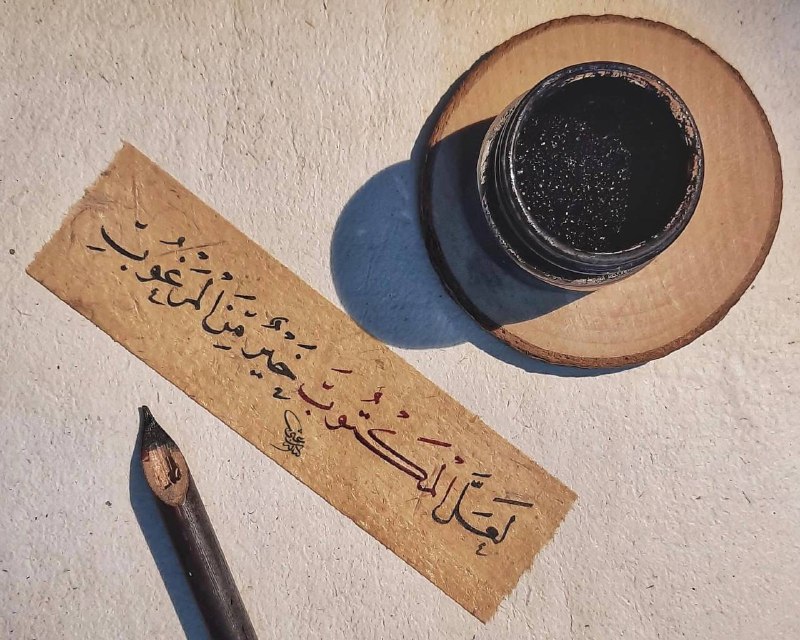 لَعَلَّ الْمَكْتُوبَ خَيْرٌ مِّنَ الْمَرْغُوبِ